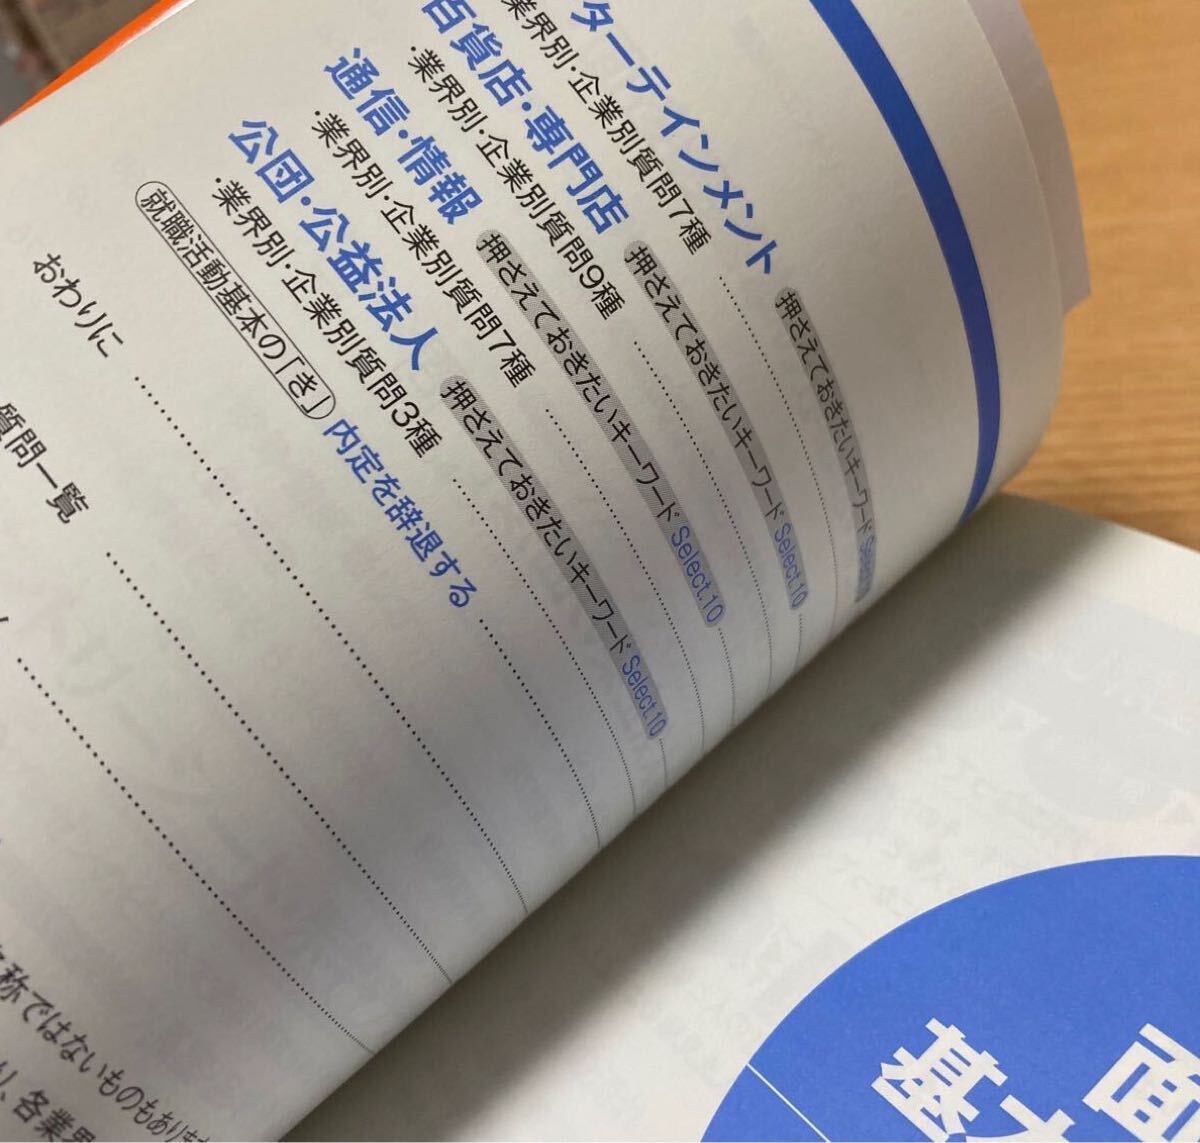 ターテインメント
業界別・企業別質問7種
押さえておきたいキーワード Select.10
百貨店・専門店
・業界別・企業別質問9種
押さえておきたいキーワード Select.10
通信・情報
・業界別・企業別質問7種
押さえておきたいキーワード Select.10
公団・公益法人
・業界別・企業別質問3種
押さえておきたいキーワード Select.10
就職活動基本の「き」 内定を辞退する
おわりに
質問一覧
称ではないものもあります
り、各業界
面
基本